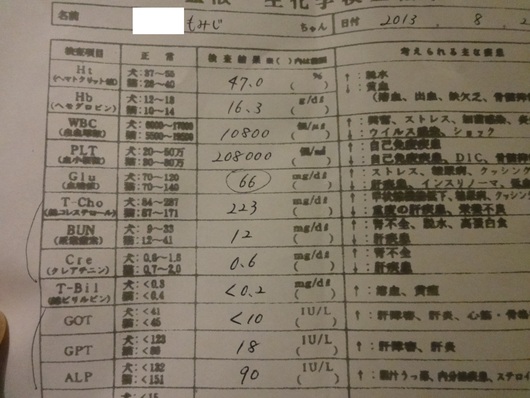 名前 もみじ ちゃん 日付 2013, 8, 2
検査項目 正常 検査結果 ( )内は 考えられる主な疾患
Ht (ヘマトクリット値) 犬:37~55 猫:26~40 47.0 % ( ) ↑:脱水 ↓:貧血 (溶血、出血、鉄欠乏、骨髄抑
Hb (ヘモグロビン) 犬:12~18 猫:10~14 16.3 g/dℓ ( )
WBC (白血球数) 犬:6000~17000 猫:5500~19500 10800 個/μℓ ( ) ↑:興奮、ストレス、細菌感染、長 ↓:ウイルス感染、ショック
PLT (血小板数) 犬:20~50万 猫:30~80万 208000 ( ) ↑:自己免疫疾患 ↓:自己免疫疾患、DIC、骨髄
Glu (血糖値) 犬:70~120 猫:70~140 66 mg/dℓ ( ) ↑:ストレス、糖尿病、クッシング ↓:肝疾患、インスリノーマ、
T-Cho (総コレステロール) 犬:84~287 猫:87~171 223 mg/dℓ ( ) ↑:甲状腺機能低下、糖尿病、クッシ ↓:重度の肝疾患、栄養不良
BUN (尿素窒素) 犬:9~33 猫:12~41 12 mg/dℓ ( ) ↑:腎不全、脱水、高蛋白食 ↓:肝疾患
Cre (クレアチニン) 犬:0.6~1.8 猫:0.7~2.0 0.6 mg/dℓ ( ) ↑:腎不全 ↓:肝疾患
T-Bil (総ビリルビン) 犬:<0.8 猫:<0.4 <0.2 mg/dℓ ( ) ↑:溶血、黄疸
GOT 犬:<41 猫:<45 <10 IU/L ( ) ↑:肝障害、肝炎、心筋・骨格
GPT 犬:<123 猫:<86 18 IU/L ( ) ↑:肝障害、肝炎
ALP 犬:<132 猫:<151 90 IU/L ( ) ↑:胆汁うっ滞、内分泌疾患、ステロイ